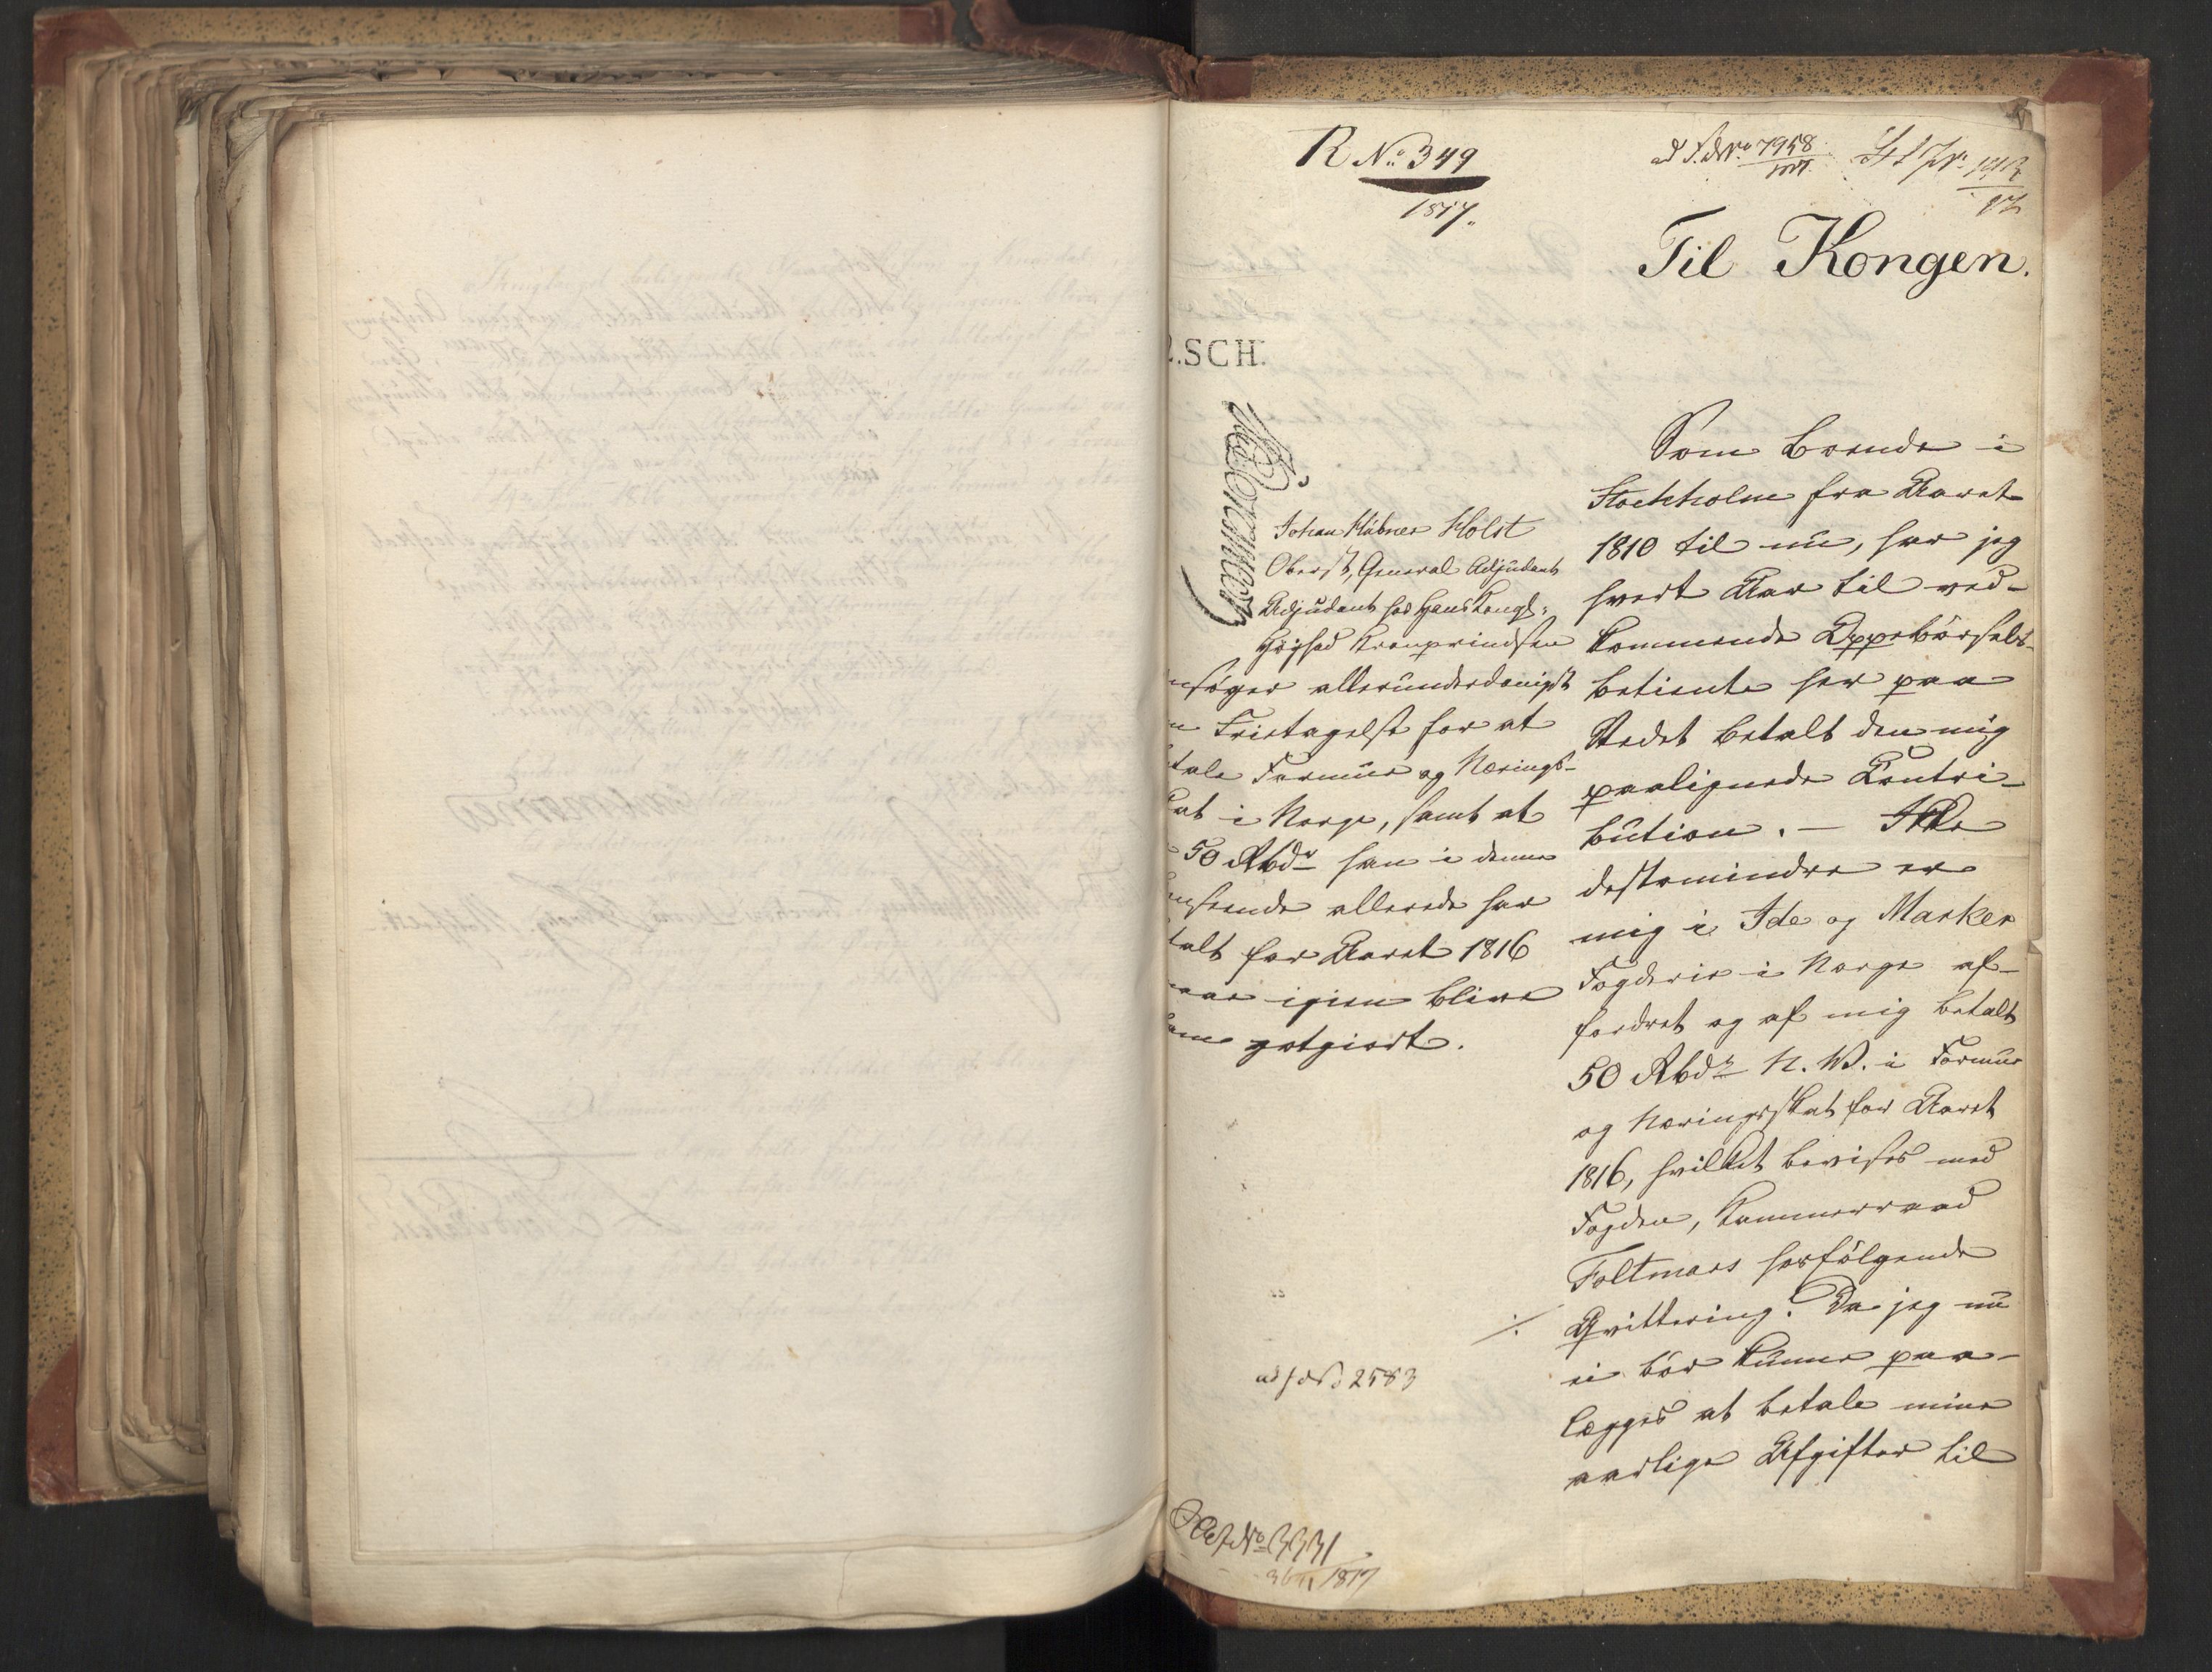 R No: 349
1817.
ad S.d No. 7958
1817.
Til Kongen.
2.SCH.
Johan Hübner Holst
Oberst, General Adjudant
Adjudant hos Hans Kongl:
Høyhed Kronprindsen
nsøger allerunderdanigst
m Fritagelse for at
tale Formue og Nærings-
kat i Norge, samt at
50 Rbdr han i denne
nseende allerede har
talt for Aaret 1816
maae igien blive
ham gotgiort.
Som boende i
Stockholm fra Aaret
1810 til nu, har jeg
hvert Aar til ved-
kommende Oppebørsels-
betiente her paa
Stedet betalt den mig
paalignede Contri-
bution. — Ikke
destomindre er
mig i Ide og Marker
Fogderie i Norge af-
fordret og af mig betalt
50 Rbdr N. W. i Formue
og Næringsskat for Aaret
1816, hvilket bevises med
Fogden, Kammerraad
Foltmars hosfølgende
./. Qvittering. Da jeg nu
ei bør kunne paa-
lægges at betale mine
aarlige Afgifter til
ad J d No 2583
No 3331
1817